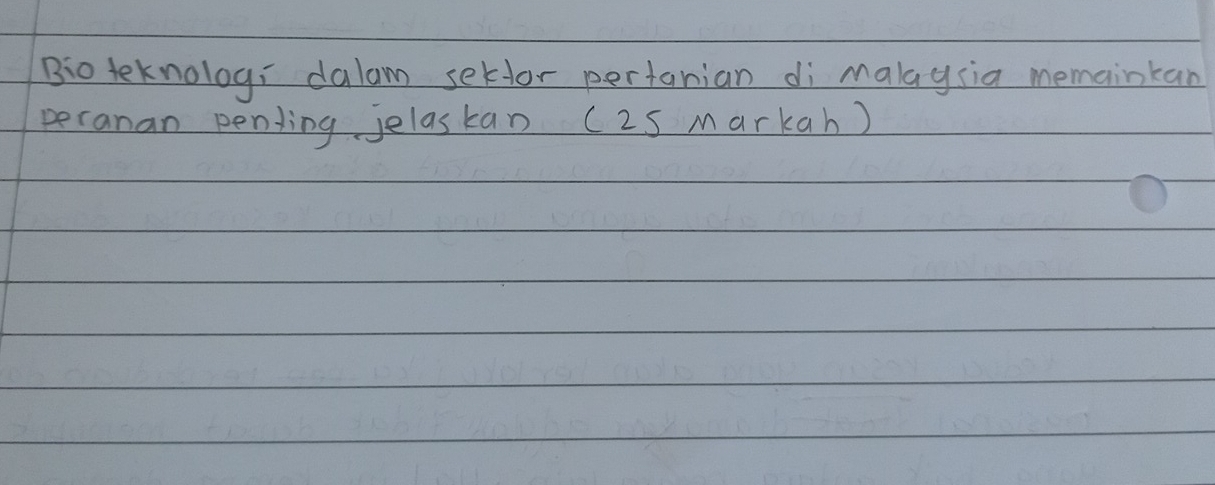 Bioteknologi dalam sektor pertanian di Malaysia memainkan
peranan penting. jelaskan (25 Markah)